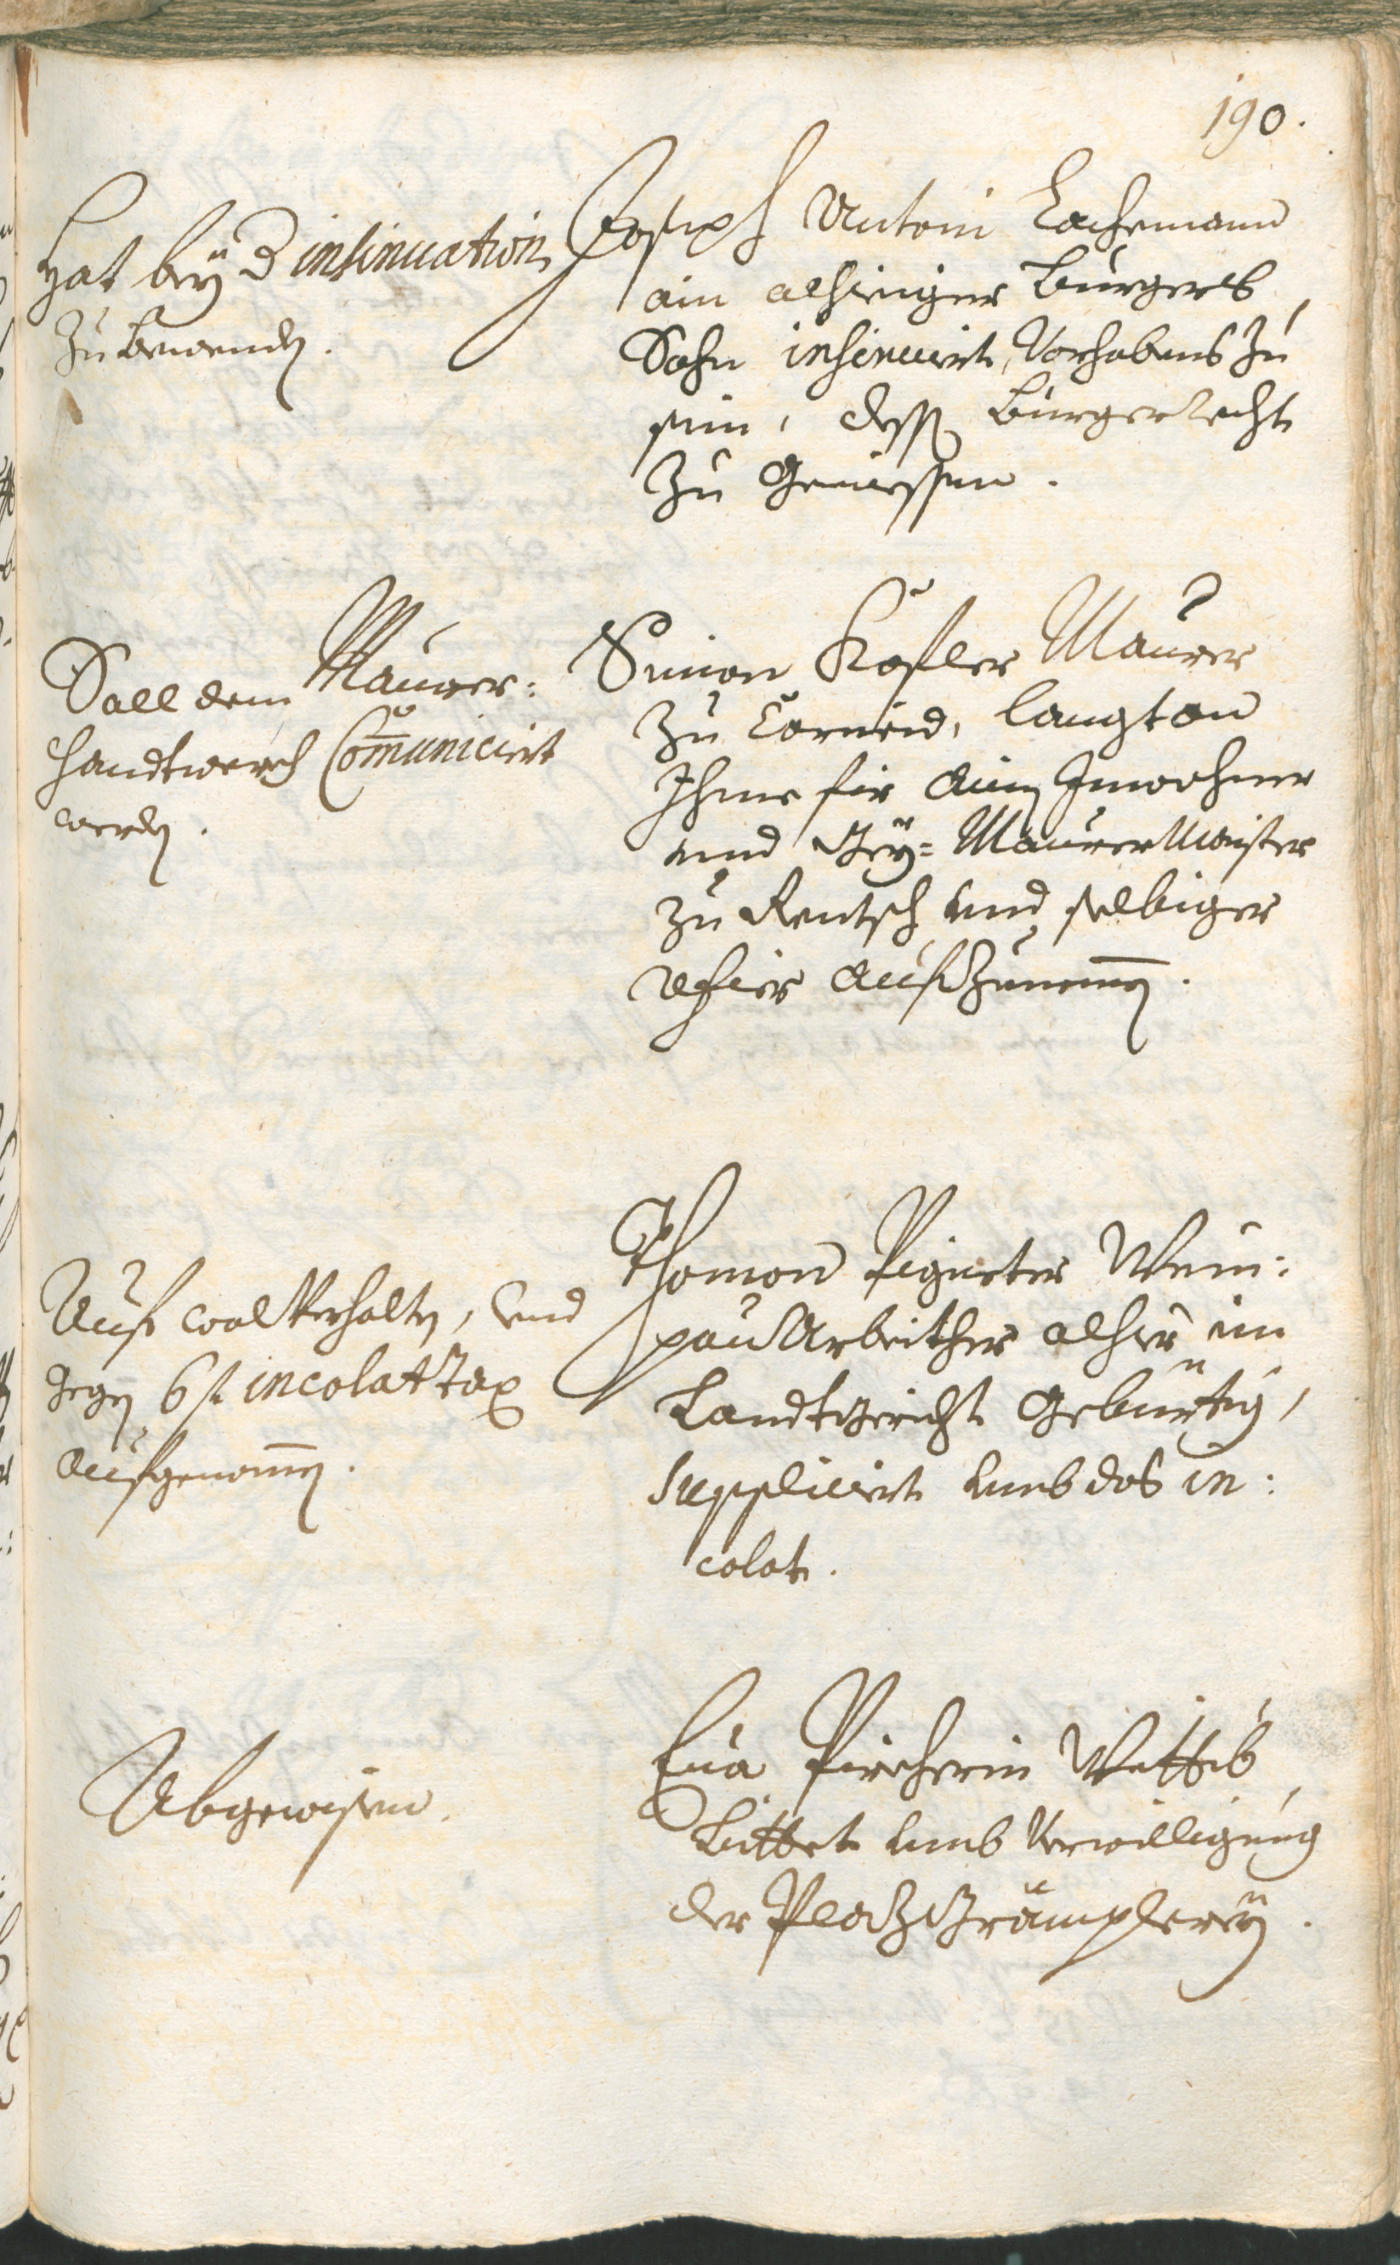 190.
Hat bey der insinuation
zu bewenden.
Joseph Antoni Lachemann
ain alhieiger Burgers
Sohn insinuirt, Vorhabens zu
sein, dess Burgerrecht
zu Geniessen.
Soll dem Maurer:
handtwerch Communicirt
werden.
Simon Kofler Maurer
zu Carneid, langt an
Ihme fir ain Inwohner
und Gey= Maurer Maister
zu Rentsch und selbiger
Refier aufzunemen.
Auf wolverhalten, und
gegen 6 fl incolat Tax
aufgenomen.
Thoman Pigneter Wein:
pau Arbeither alhier im
Landtgericht Gebürtig,
supplicirt umb das in:
colat.
Abgewisen.
Eua Pircherin Wittib
bittet umb Verwilligung
der Plaz Grämplerey.